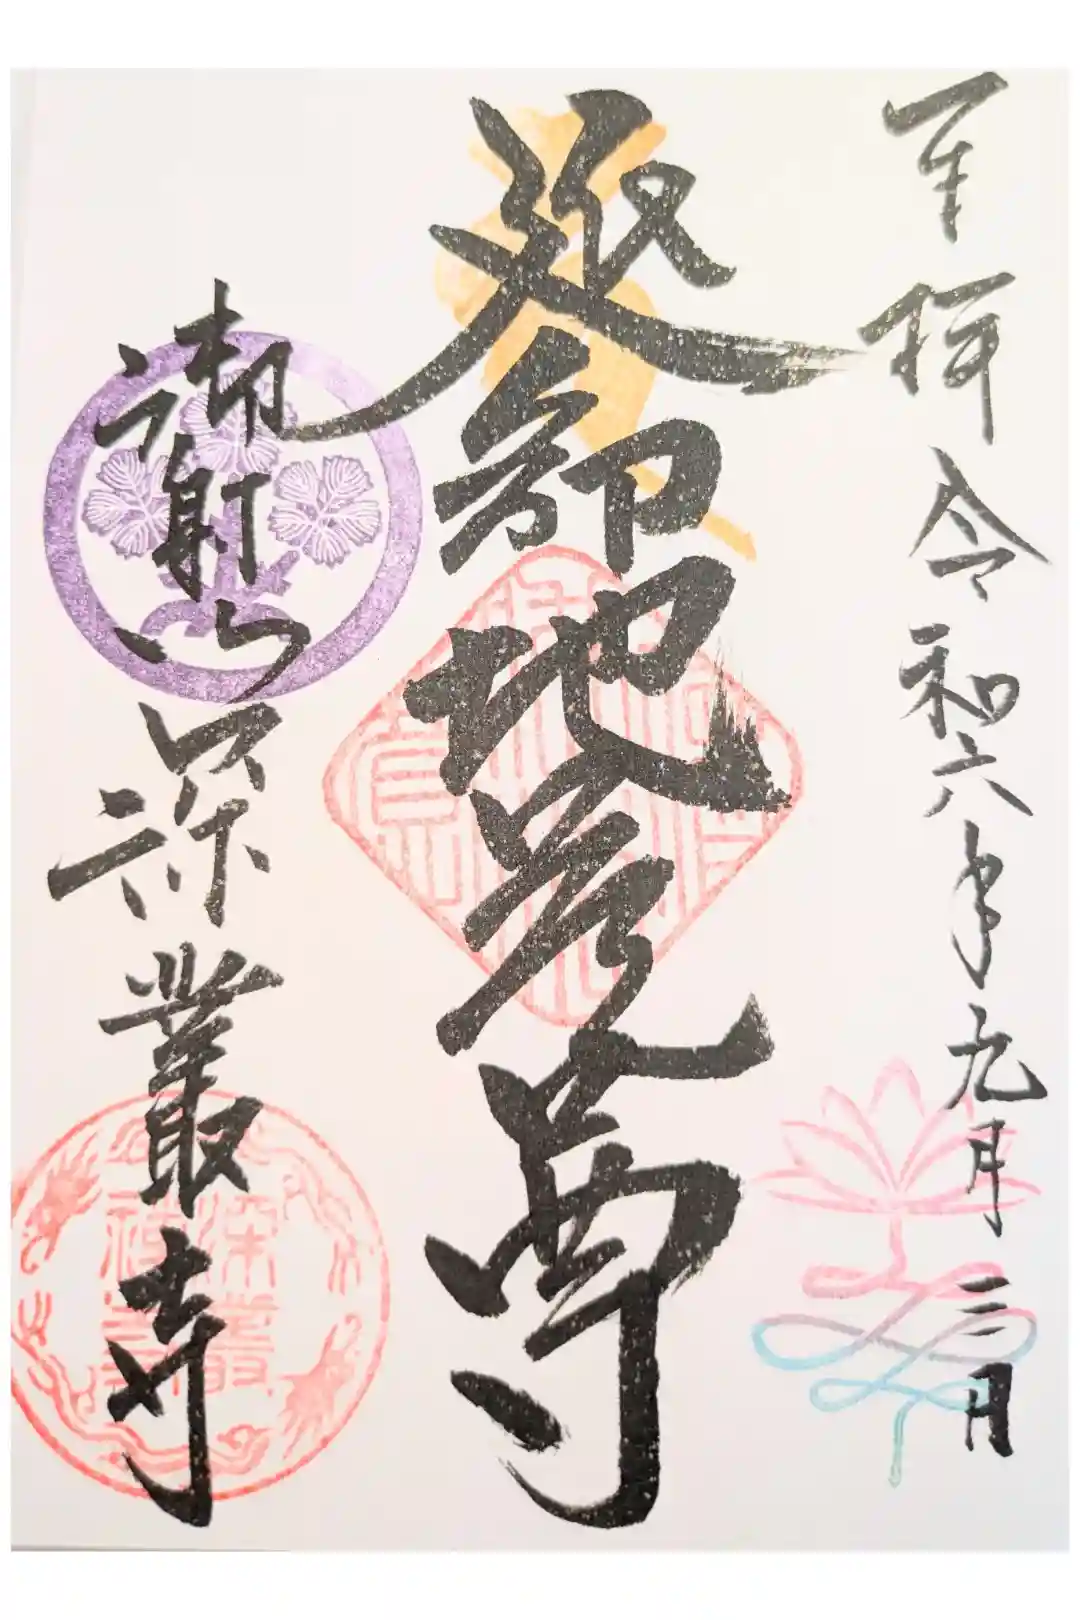 奉拝 令和六年九月三日
延命地蔵尊
御射山 深叢寺